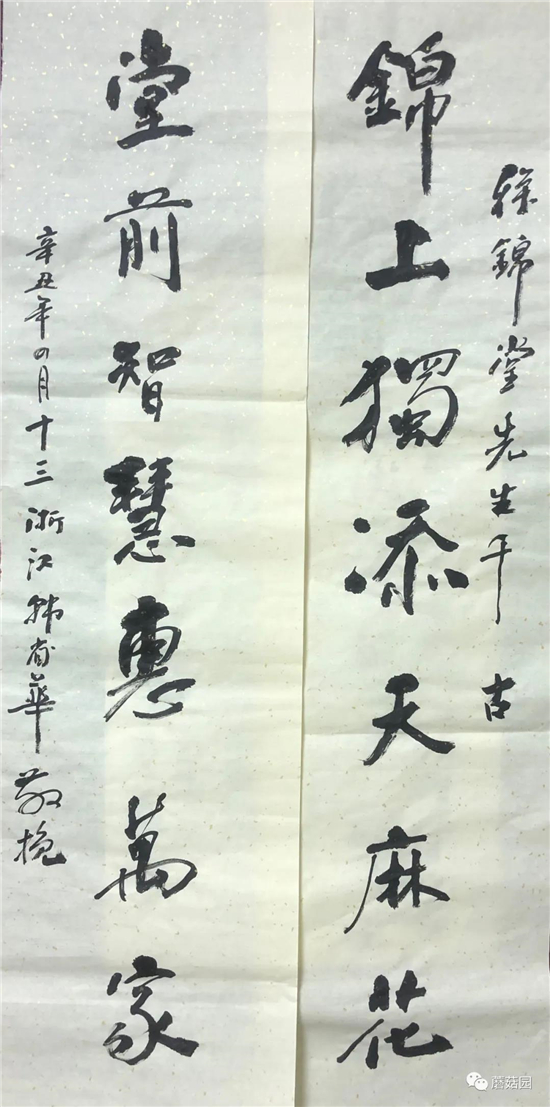 徐錦堂先生千古
錦上獨添天麻花
堂前智慧惠萬家
辛丑年四月十三浙江韩省華敬挽
蘑菇园